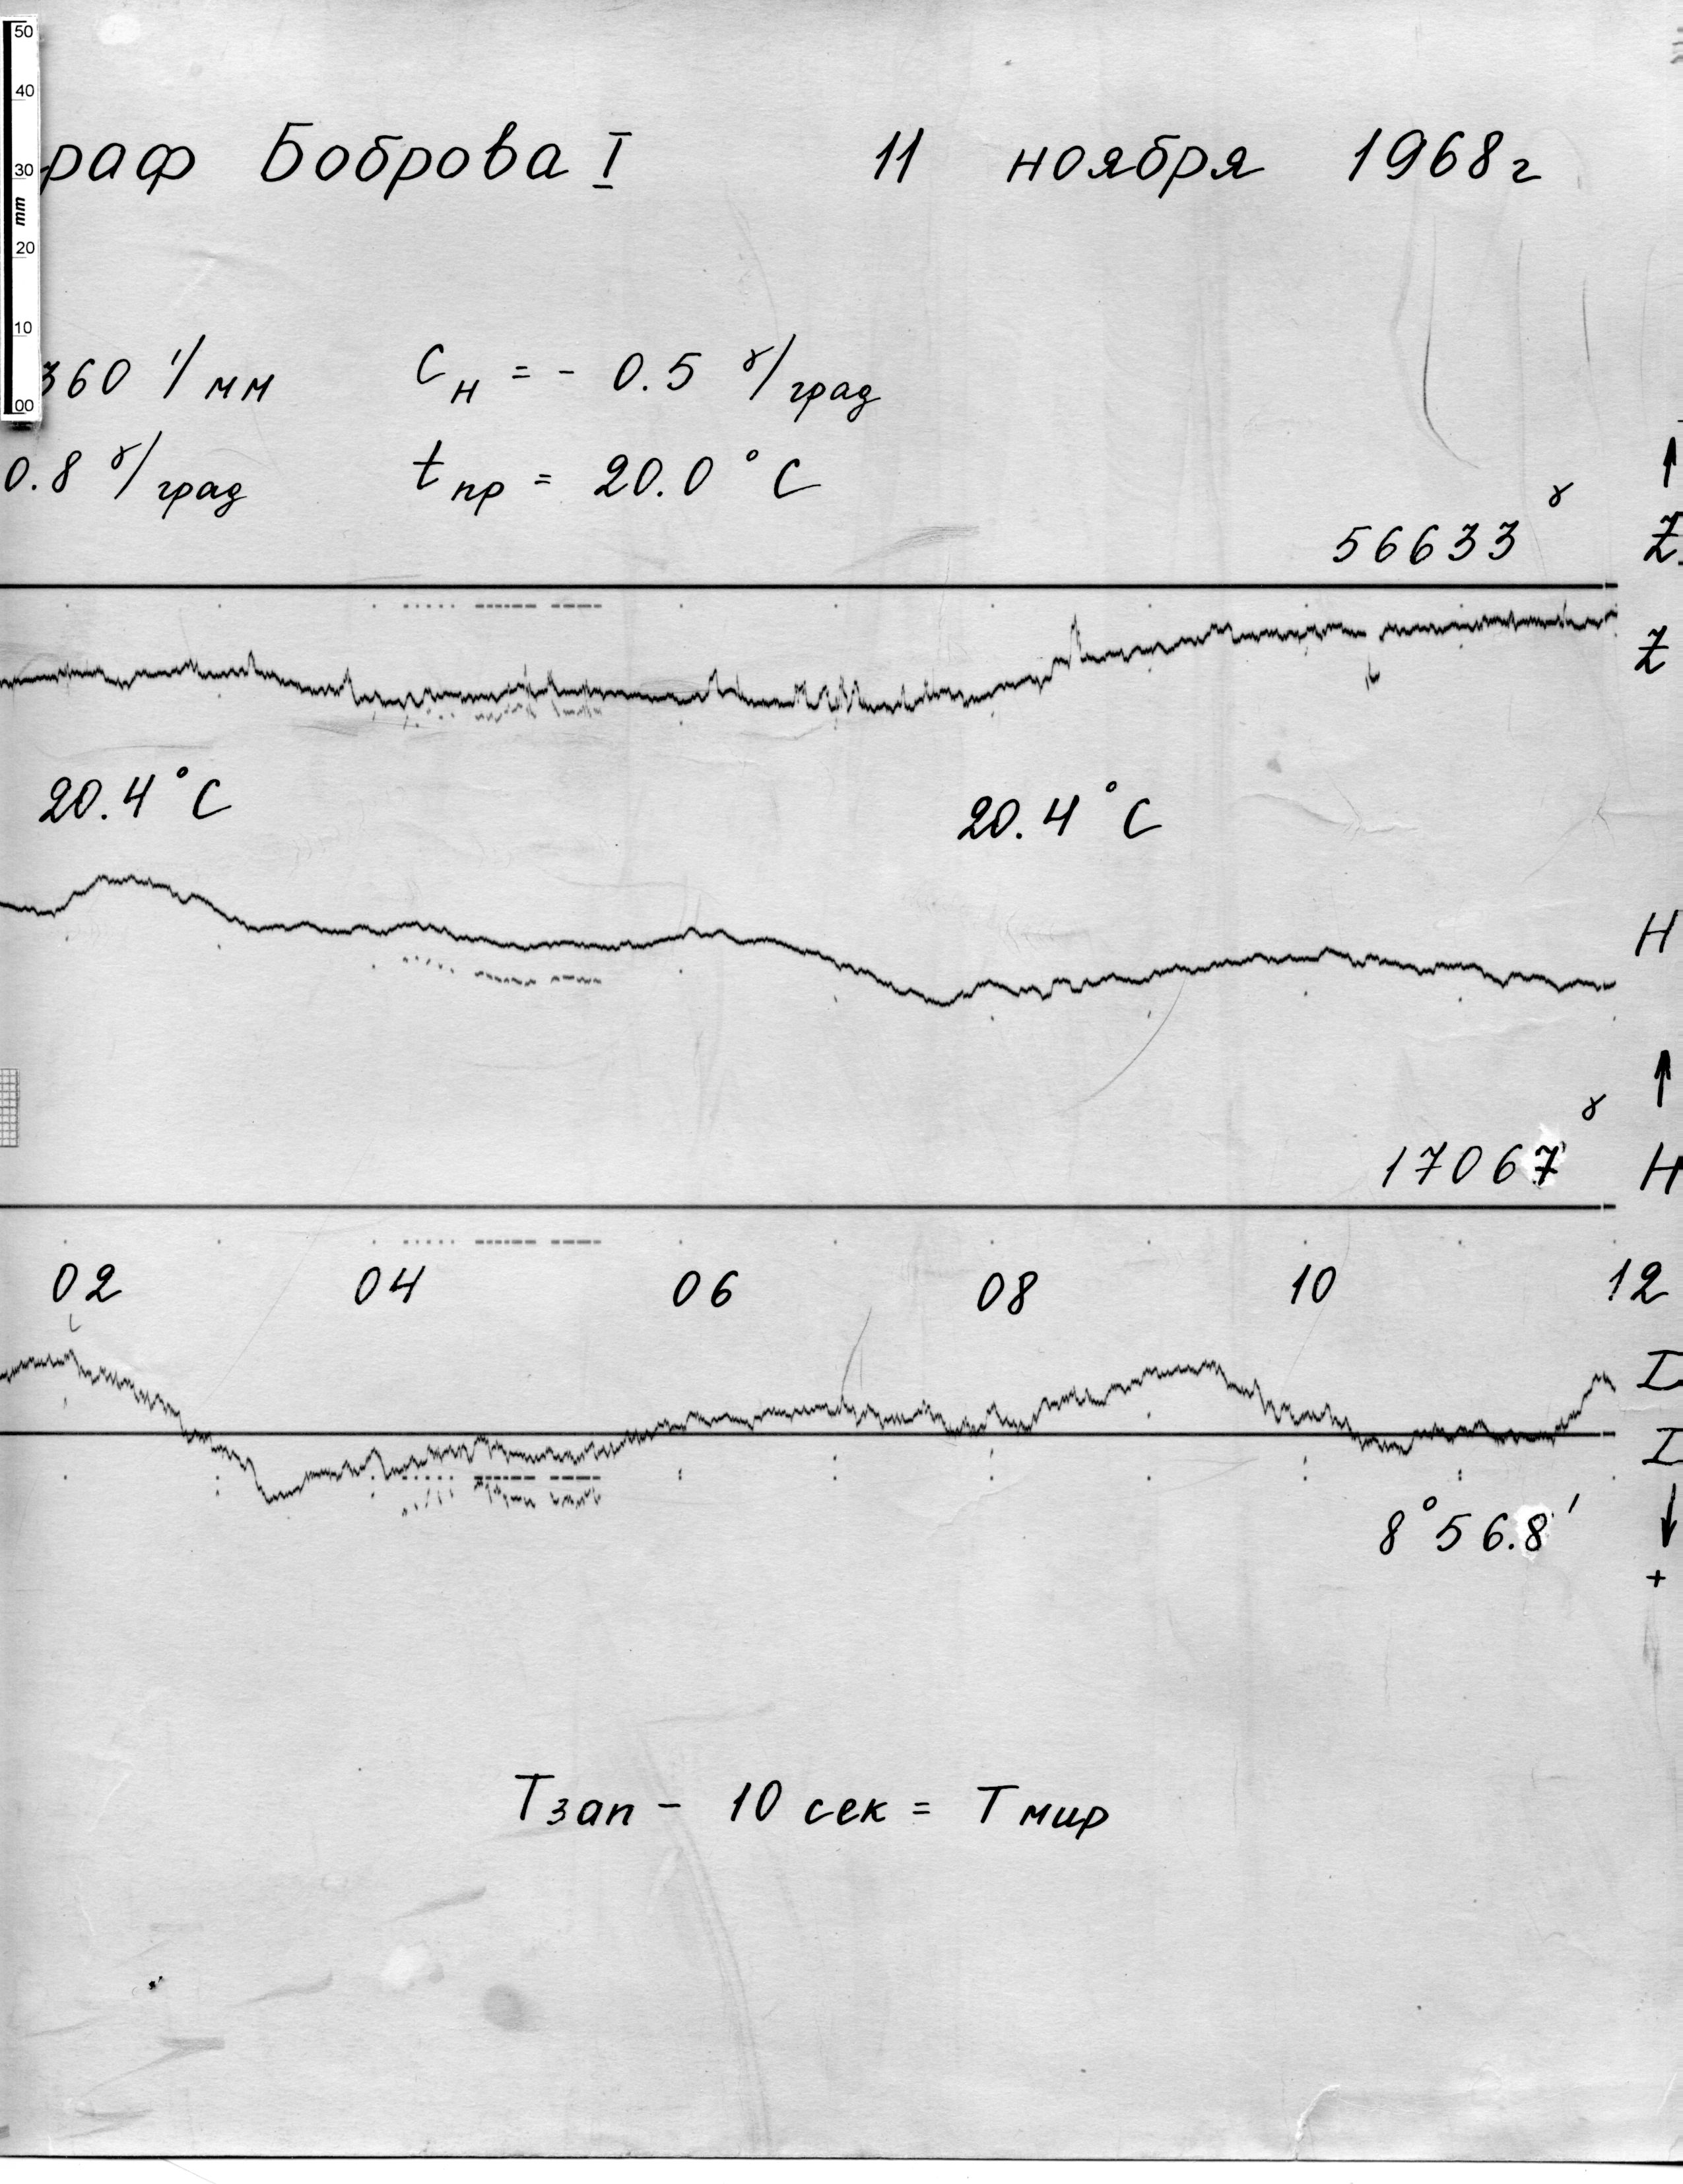 50
40
30
mm
20
10
00
раф Боброва I 11 ноября 1968г
360 '/мм Cн = - 0.5 γ/град
0.8 γ/град tпр = 20.0 °C
56633 γ Z
Z
20.4 °C 20.4 °C
H
17067 γ H
02 04 06 08 10 12
I
I
8°56.8'
+
Tзап - 10 сек = Tмир